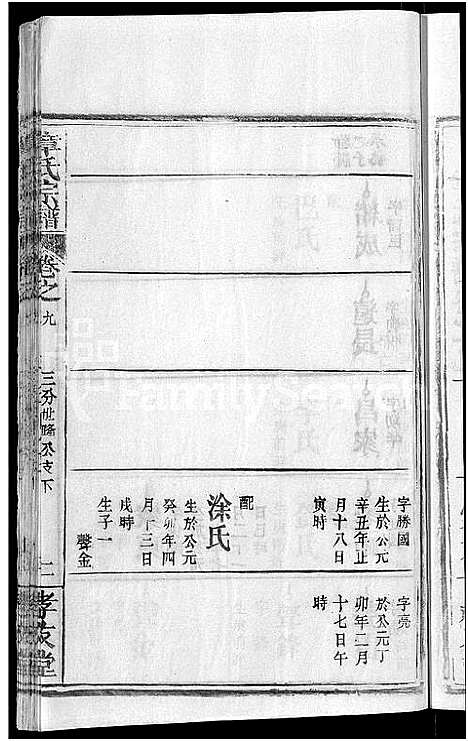 字勝國
生於公元
辛丑年正
月十八日
寅時
配
涂氏
生於公元
癸卯年四
月十三日
戌時
生子一
聲金
字亮
於公元丁
卯年二月
十七日午
時
章氏宗譜
卷之九
三分世隆公支下
二
孝友堂
FamilySearch